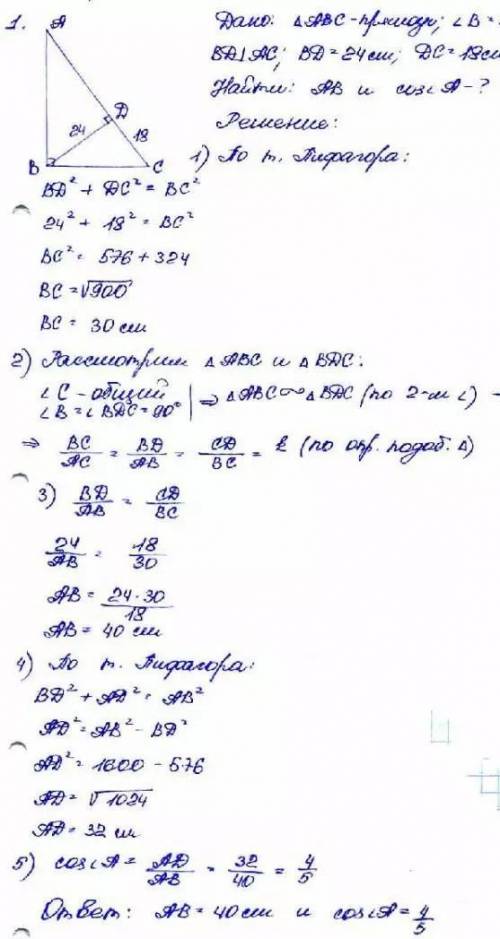 1.
A
D
24
18
B
C
Дано: △ABC-прямоуг; ∠B =
BD⊥AC; BD = 24 см; DC = 18 см
Найти: AB и cos∠A - ?
Решение:
1) По т. Пифагора:
BD² + DC² = BC²
24² + 18² = BC²
BC² = 576 + 324
BC = √900
BC = 30 см
2) Рассмотрим △ABC и △BDC:
∠C - общий
∠B = ∠BDC = 90° | ⇒ △ABC ∾ △BDC (по 2-м ∠) →
⇒ BC/AC = BD/AB = CD/BC = k (по опр. подоб. △)
3) BD/AB = CD/BC
24/AB = 18/30
AB = 24·30/18
AB = 40 см
4) По т. Пифагора:
BD² + AD² = AB²
AD² = AB² - BD²
AD² = 1600 - 576
AD = √1024
AD = 32 см
5) cos∠A = AD/AB = 32/40 = 4/5
Ответ: AB = 40 см и cos∠A = 4/5